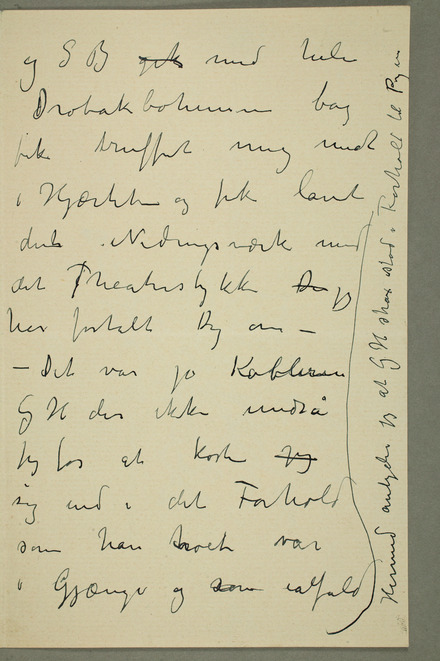 og S B gik med hele
Drøbakbohemen bag
fik truffet mig midt
i Hjærtet og fik lavet
det Nidingsværk med
det Theaterstykke De jeg
har fortalt Dig om –
– Det var jo Kobleren
G H der ikke undså
sig for at kaste jeg
sig ind i det Forhold
som han troet var
i Gjænge og som ialfald
Hermed antyder jeg at G H strax stod i Forhold til Pigen